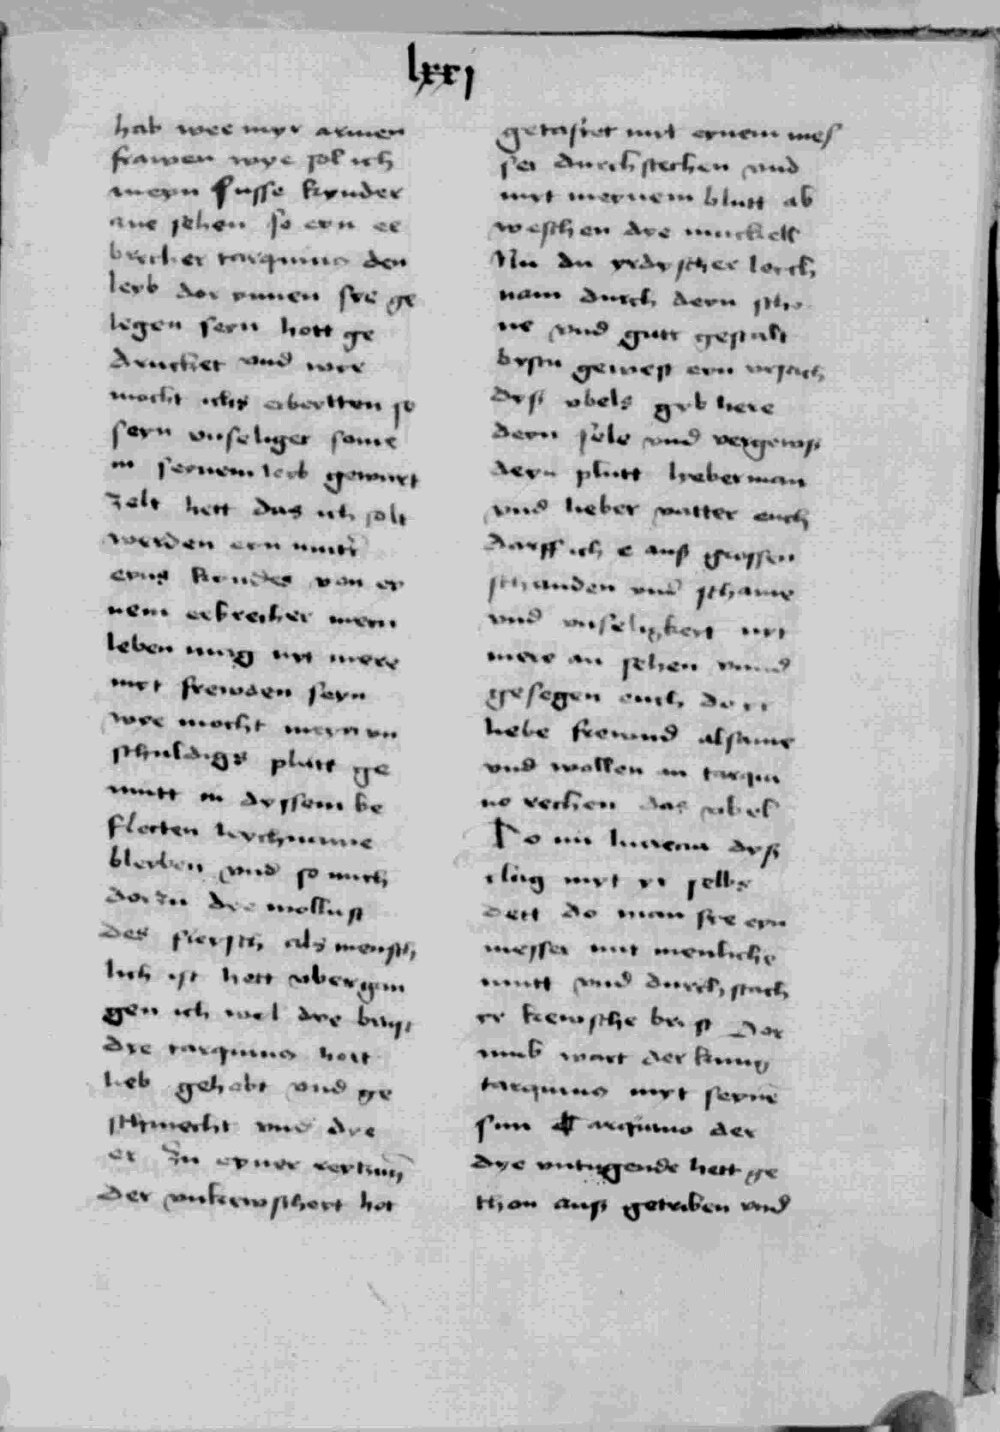 lxxj
hab wee myr armen
frawen wye sol ich
meyn susse kynder
ane sehen so eyn ee
brecher tarquinus den
leyb dor ynnen sye ge
legen seyn hott ge
drucket vnd wye
mocht ichs erbeytten so
seyn vnseliger same
in seynem leyb gewurt
zelt hett das ich solt
werden eyn mutt
eyns kyndes von ey
nem eebrecher meyn
leben mag nyt mere
myt frewden seyn
wye mocht meyn vn
schuldigs plutt ge
mutt in dyssem be
fleckten leychname
bleyben vnd so mich
dorzu dye wollust
des fleysch als mensch
lich ist hett vbergan
gen ich wel dye brust
dye tarquinus hott
lieb gehabt vnd ge
schmecht vnd dye
er zu eyner reytzung
der vnkewscheyt hot
getastet mit eynem mes
ser durchstechen vnd
myt meynem blutt ab
weschen dye muckell
Nu du yrdyscher leych
nam durch deyn scho
ne vnd gutt gestalt
bystu gewest eyn vrsach
dyß vbels gyb here
deyn sele vnd vergewß
deyn plutt lyeber man
vnd lieber vatter euch
darff ich e auß grossen
schanden vnd schame
vnd vnseligkeyt nyt
mere an sehen vnnd
gesegen euch dorr
liebe frewnd alsame
vnd wollen an tarqui
no rechen das vbel
Do nu lucrecia dyß
clag myt yr selbs
dett do nam sye eyn
messer mit menliche
mutt vnd durch stach
yr kewsche brust Dor
umb wart der kunig
tarquinus myt seyne
sun Tarquino der
dye vntugende hett ge
thon auß getriben vnd